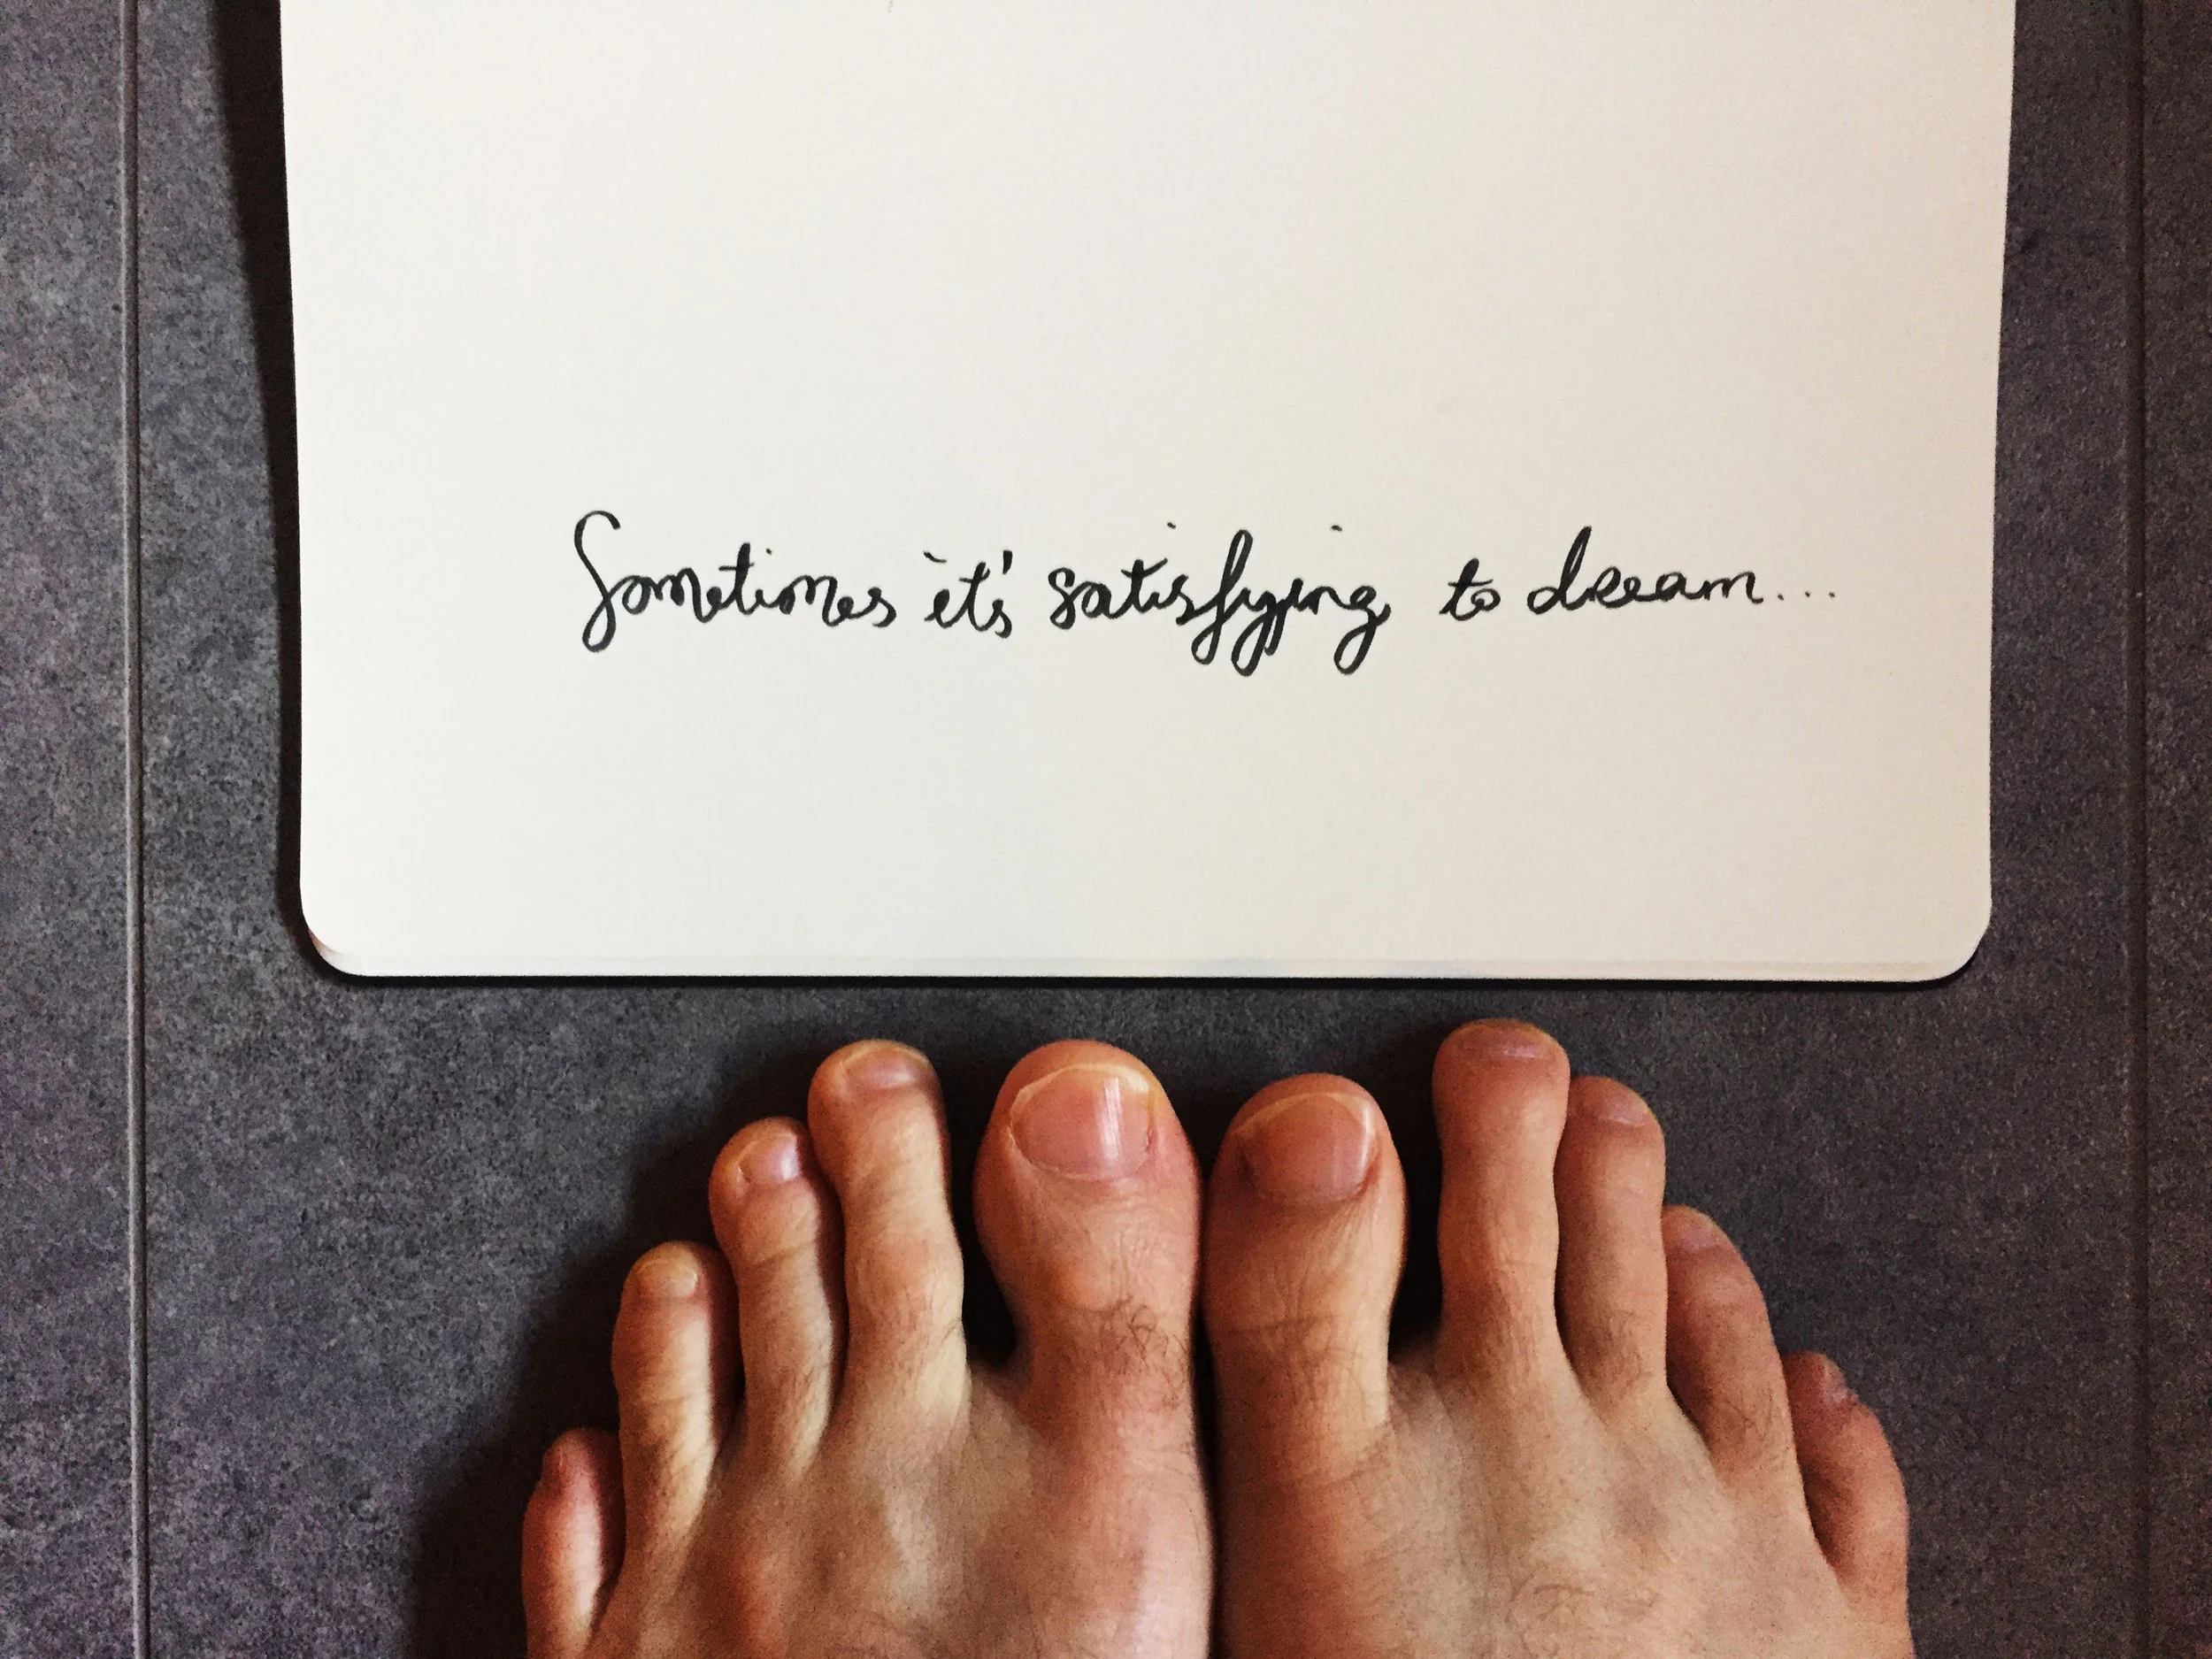 Sometimes it's satisfying to dream...